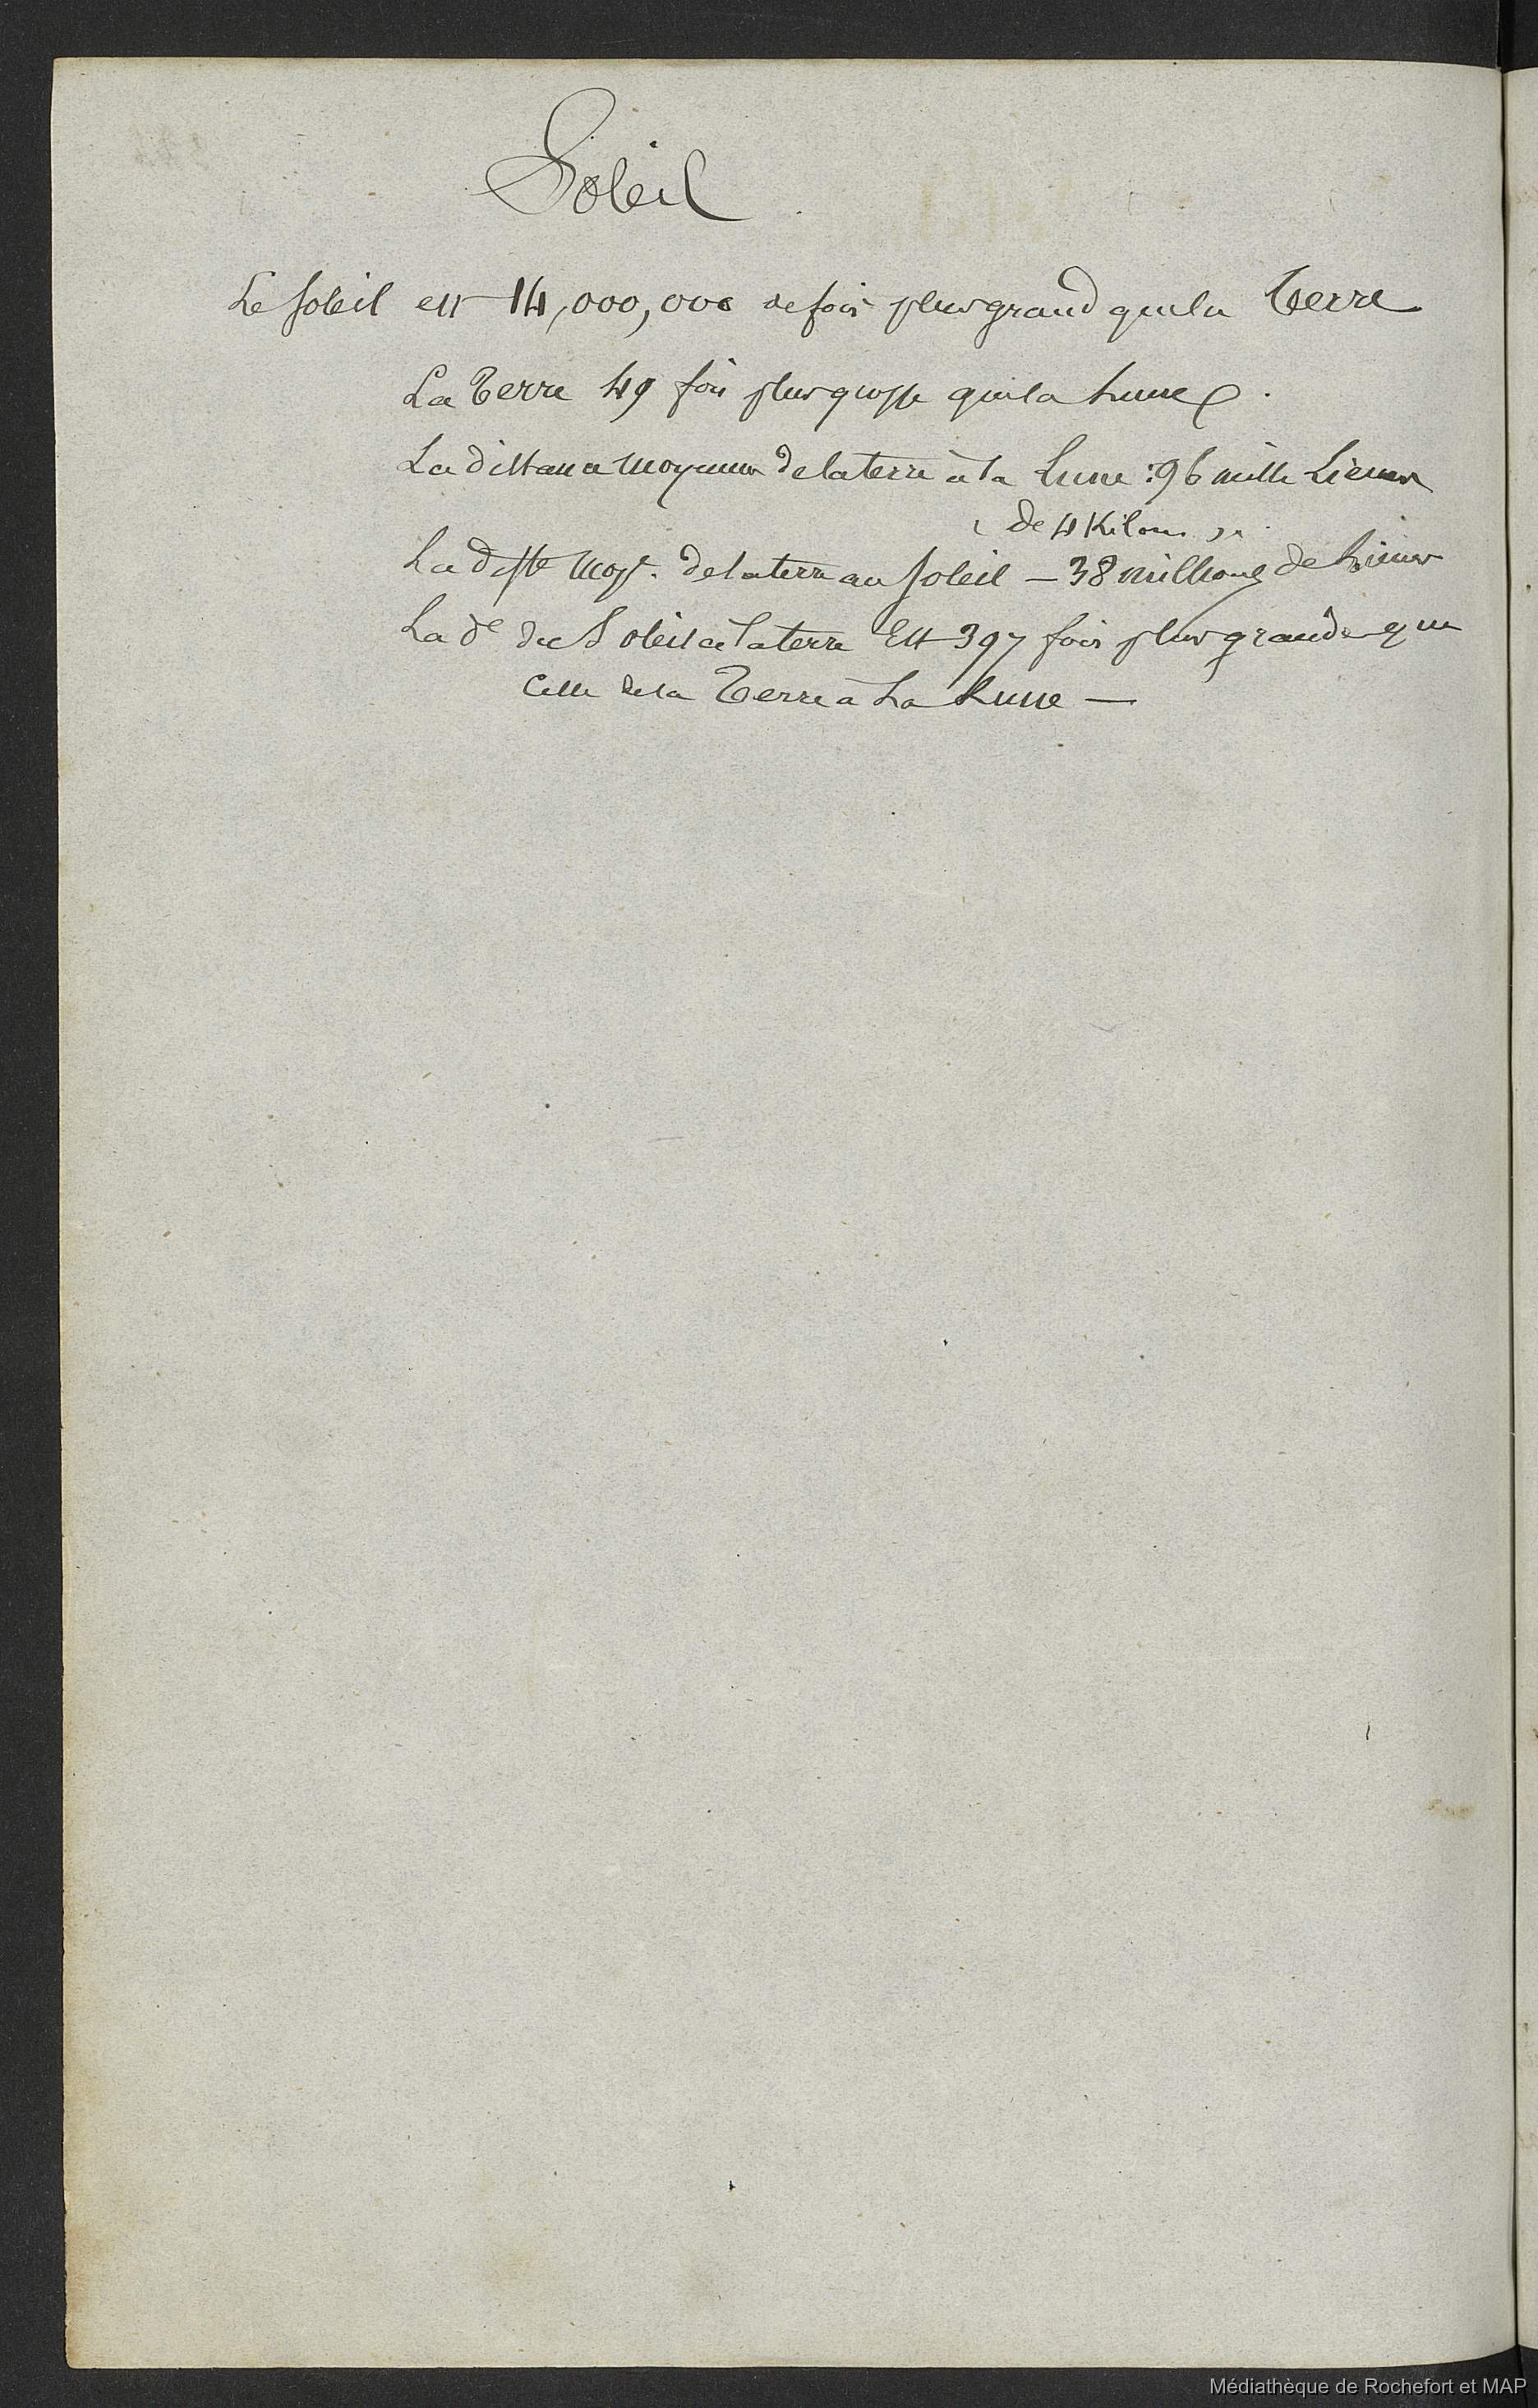 Soleil
Le soleil est 14,000,000 de fois plus grand que la Terre
La Terre 49 fois plus grosse que la Lune.
La distance moyenne de la terre à la Lune : 96 mille Lieues
de 4 Kilom
La diste moye. de la terre au soleil — 38 millions de Lieues
La de du Soleil à la terre Est 397 fois plus grande que
celle de la Terre à La Lune —
Médiathèque de Rochefort et MAP